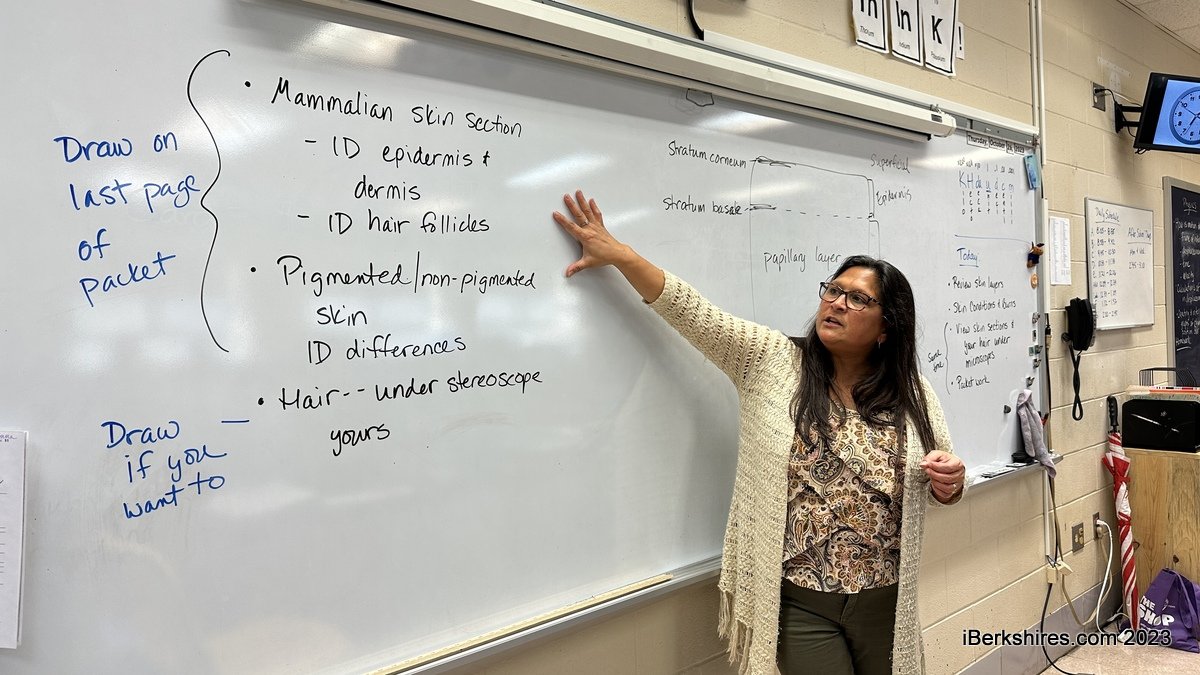 Draw on
last page
of
packet
• Mammalian skin section
- ID epidermis &
dermis
- ID hair follicles
• Pigmented/non-pigmented
skin
ID differences
• Hair-- under stereoscope
yours
Draw —
if you
want to
Stratum corneum
stratum basale
Superficial
Epidermis
papillary layer
In In K !
Thursday, October
KHdudcm
Today
• Review skin layers
• Skin Conditions & Burns
• View skin sections &
your hair under
microscopes
Same
time
• Packet work
Daily Schedule
THE
iBerkshires.com 2023